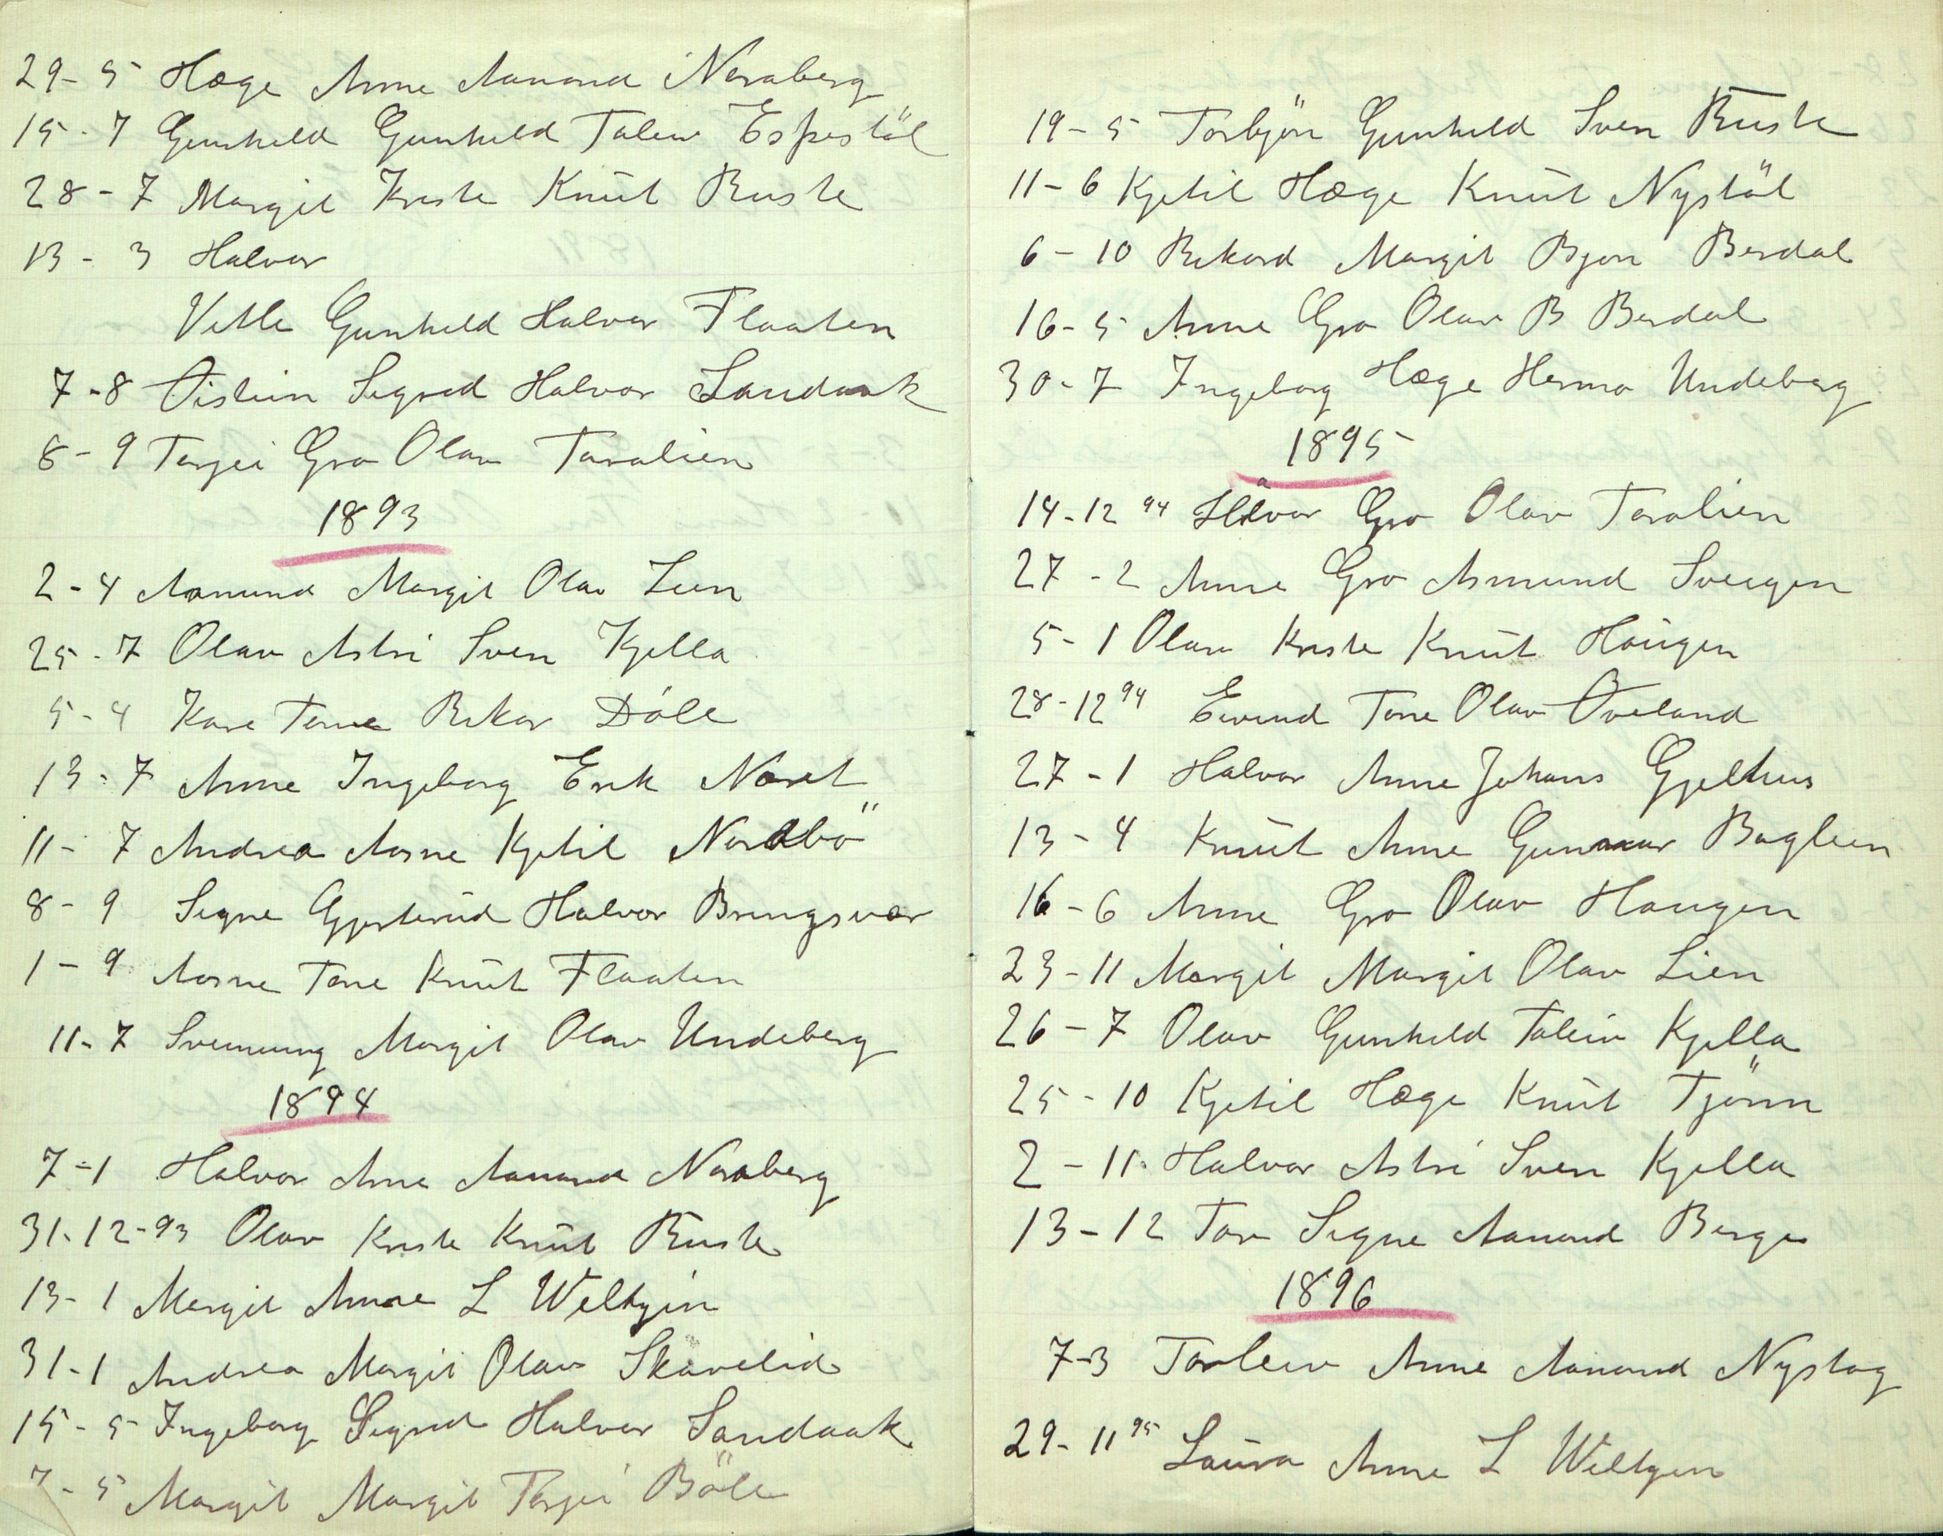 29-5 Hæge Anne Aanond Noraberg
15-7 Gunhild Gunhild Taleiv Espestöl
28-7 Margit Kriste Knut Ruste
13-3 Halvor
Vetle Gunhild Halvor Flaaten
7-8 Øistein Sigrid Halvor Sandaak
8-9 Torjei Gro Olav Taralien
1893
2-4 Aanund Margit Olav Lien
25-7 Olav Astri Sven Kjella
5-4 Kare Tone Rikar Döle
13-7 Anne Ingeborg Erik Noret
11-7 Andrea Aasne Kjetil Nordbö
8-9 Signe Gjertrud Halvor Bringsvær
1-9 Aasne Tone Knut Flaaten
11-7 Sveinung Margit Olav Undeberg
1894
7-1 Halvor Anne Aanond Noraberg
31-12-93 Olav Kriste Knut Ruste
13-1 Margit Anne L Weltzin
31-1 Andrea Margit Olav Skarelid
15-5 Ingeborg Sigrid Halvor Sandaak
7-5 Margit Margit Torjei Böle
19-5 Torbjör Gunhild Sven Ruste
11-6 Kjetil Hæge Knut Nystöl
6-10 Rikard Margit Bjorn Berdal
16-5 Anne Gro Olav B Berdal
30-7 Ingeborg Hæge Hermo Undeberg
1895
14-12 94 Håvor Gro Olav Taralien
27-2 Anne Gro Asmund Sveigen
5-1 Olav Kriste Knut Haugen
28-12 94 Eivind Tone Olav Øveland
27-1 Halvor Anne Johans Gjelhus
13-4 Knut Anne Gunnar Baglien
16-6 Anne Gro Olav Haugen
23-11 Margit Margit Olav Lien
26-7 Olav Gunhild Taleiv Kjella
25-10 Kjetil Hæge Knut Tjönn
2-11 Halvor Astri Sven Kjella
13-12 Tor Signe Aanond Berge
1896
7-3 Torleiv Anne Aanond Nystog
29-11 95 Laura Anne L Weltzin